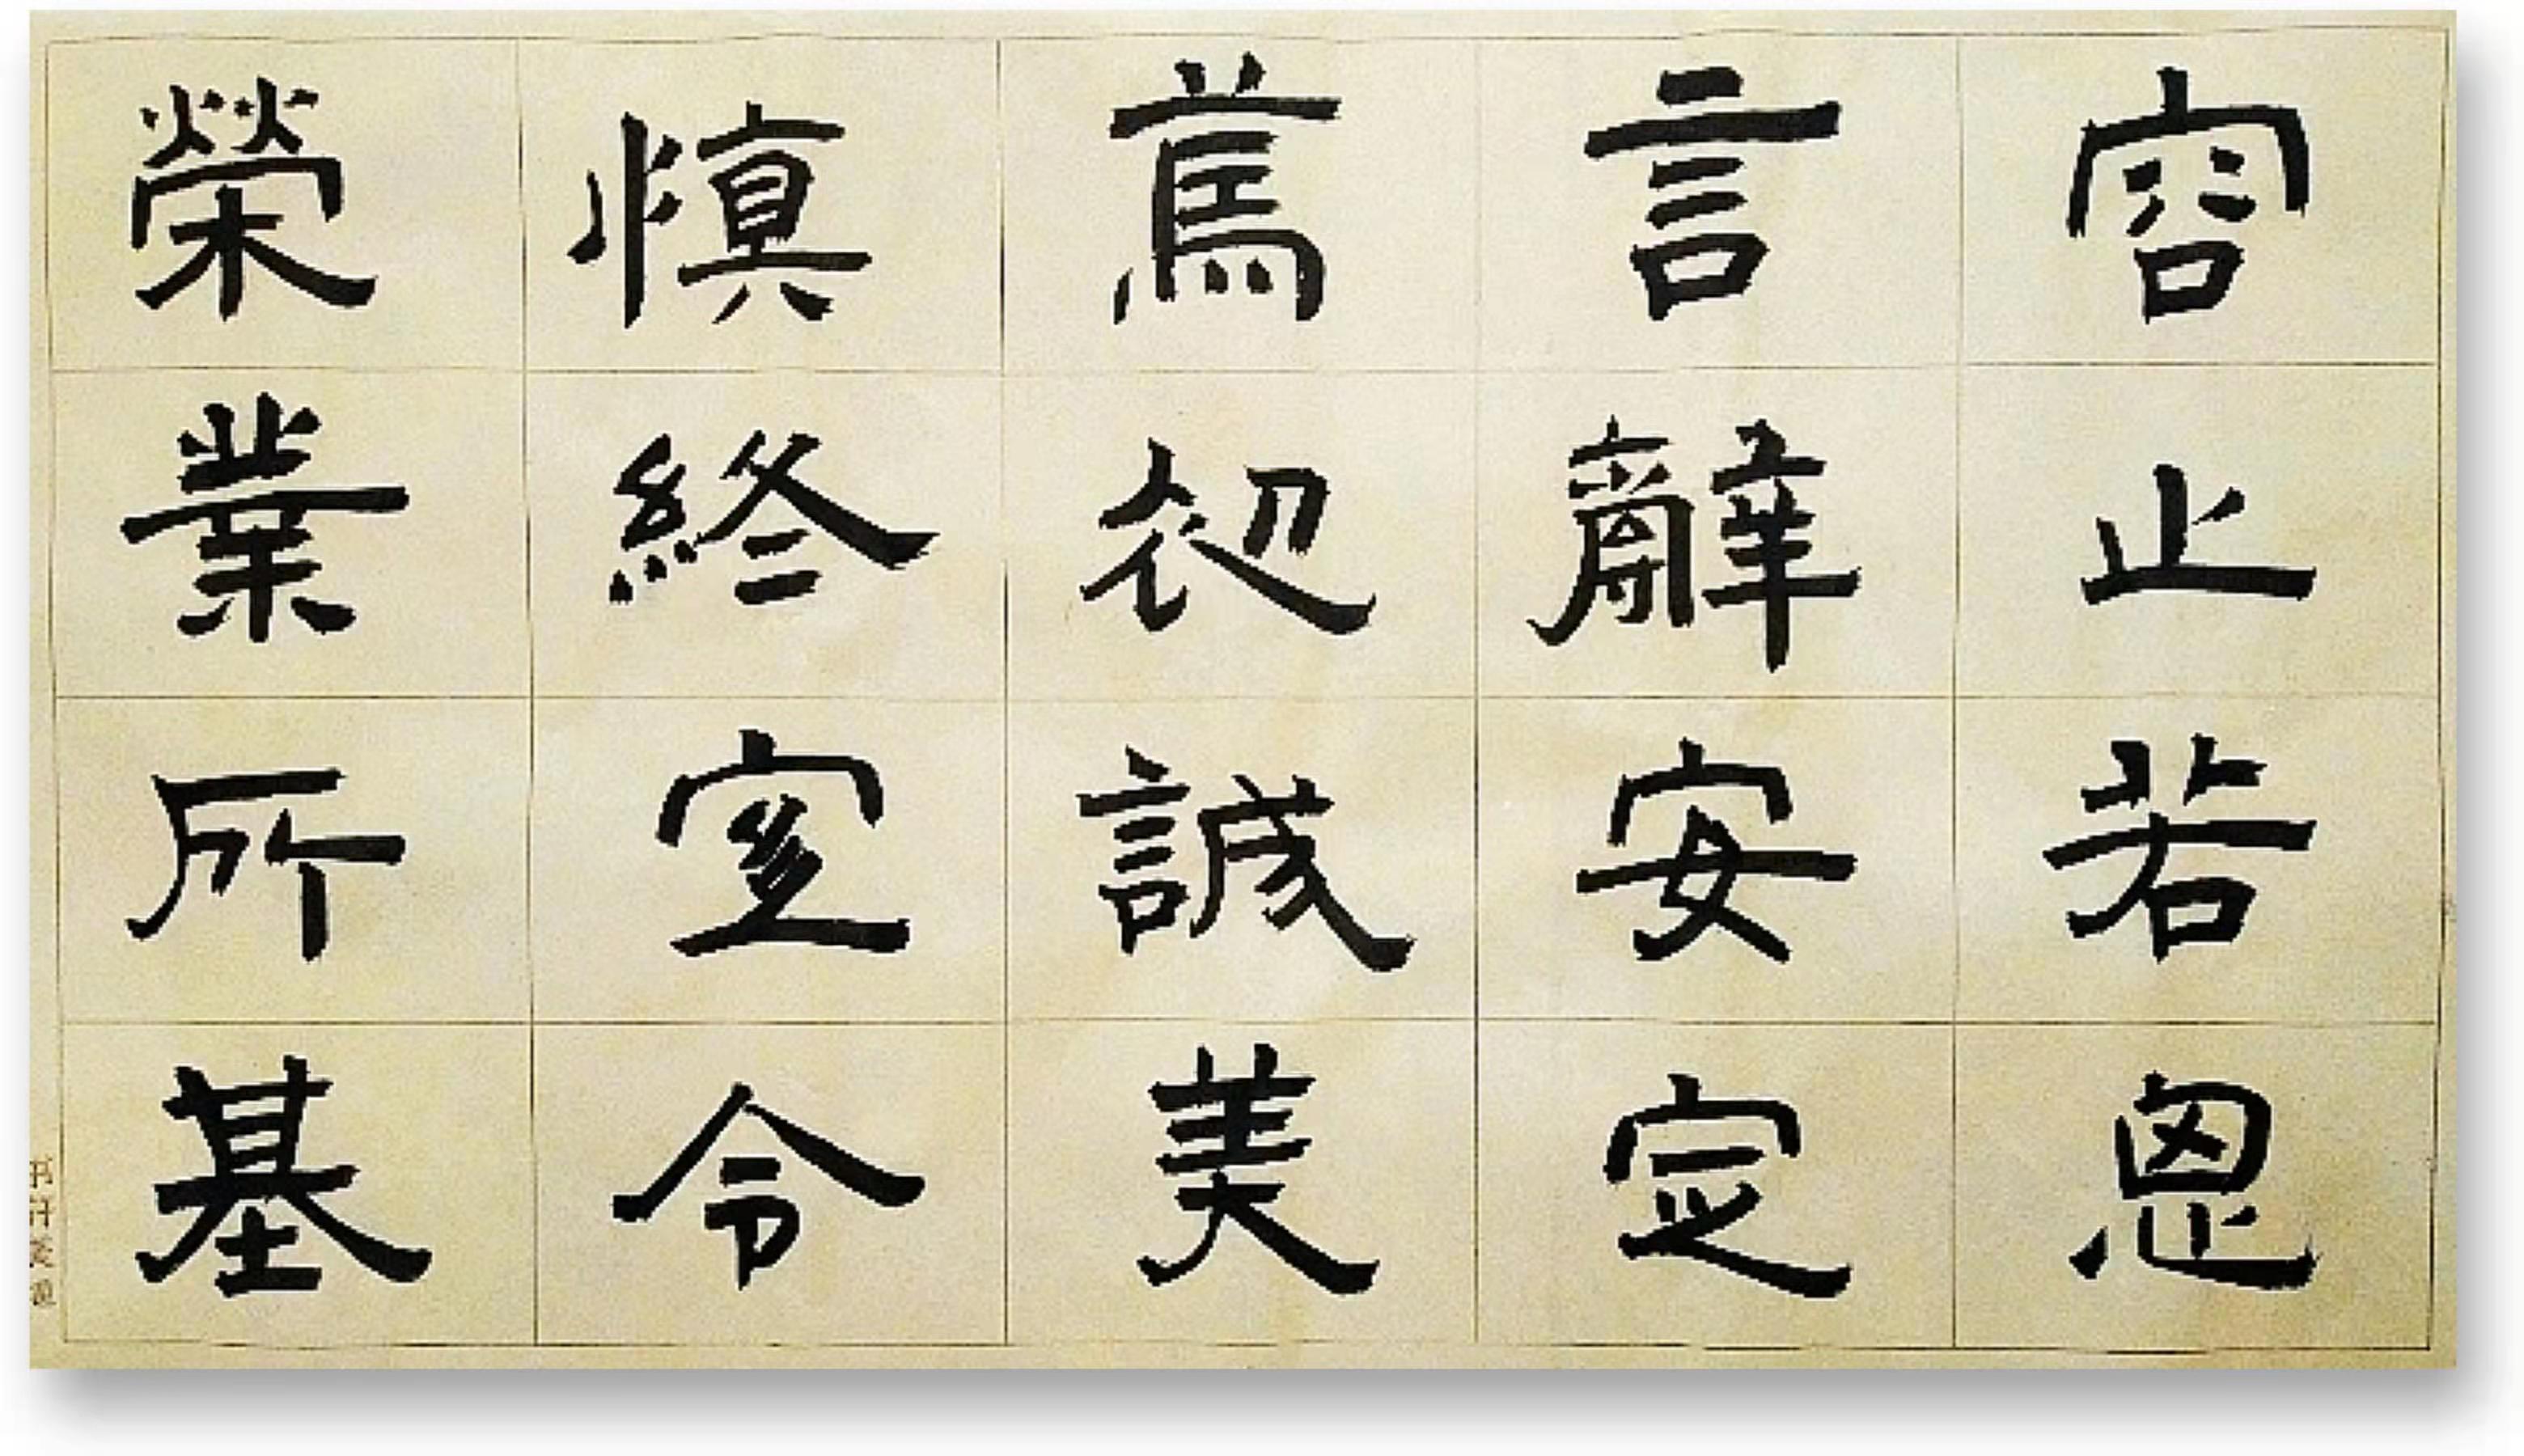 容止若思
言辭安定
篤初誠美
慎終宜令
榮業所基